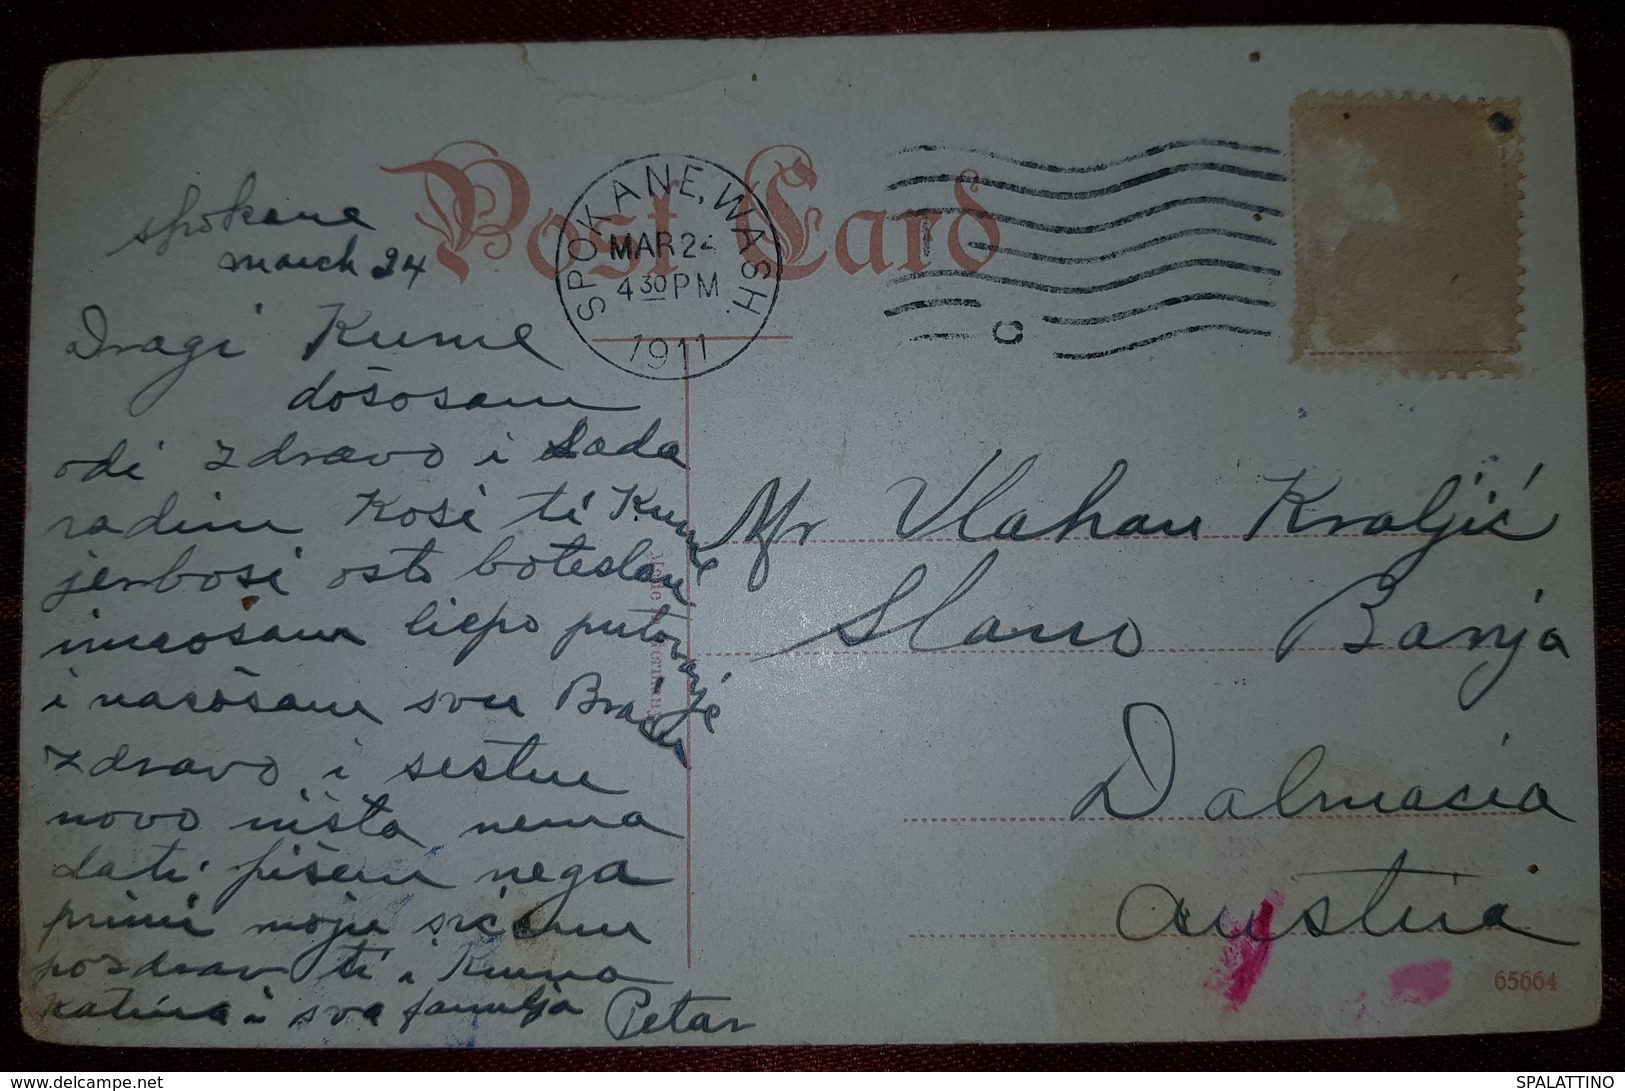 Post Card
SPOKANE, WASH.
MAR 24
4 30 PM
1911
C
spokane
march 24
Dragi Kume
došosam
odi zdravo i sada
radim Kosi ti Kume
jerbosi osto botestan
imaosam liepo putovanje
i naśosam svu Braću
zdravo i sestre
novo ništa nema
dati pišem nega
primi moje srćem
pozdrav ti i Kuma
Katina i sva familja Petar
Mr Vlahan Kraljić
Slano Banja
Dalmacia
Austria
65664
SPALATTINO
www.delcampe.net